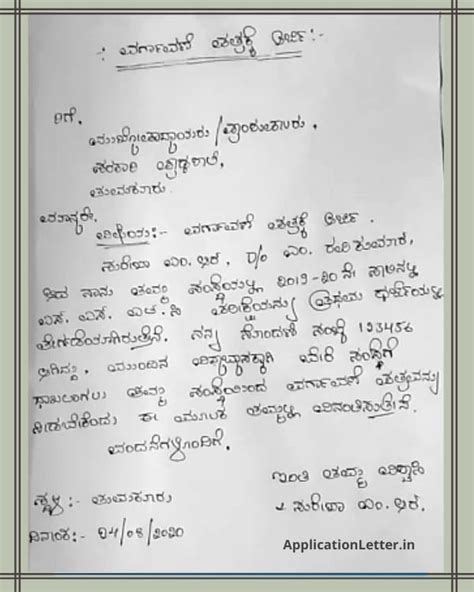 -: ವರ್ಗಾವಣೆ ಪತ್ರಕ್ಕೆ ಅರ್ಜಿ:-
ಗೆ,
ಮುಖ್ಯೋಪಾಧ್ಯಾಯರು / ಪ್ರಾಂಶುಪಾಲರು,
ಸರಕಾರಿ ಪ್ರೌಢಶಾಲೆ,
ತುಮಕೂರು.
ಮಾನ್ಯರೇ,
ವಿಷಯ:- ವರ್ಗಾವಣೆ ಪತ್ರಕ್ಕೆ ಅರ್ಜಿ.
ಎಂ. ಆರ್, D/o ಎಂ. ರವಿಕುಮಾರ,
ಆದ ನಾನು ತಮ್ಮ ಸಂಸ್ಥೆಯಲ್ಲಿ 2019-20 ನೇ ಸಾಲಿನಲ್ಲಿ
ಎಸ್. ಎಸ್. ಎಲ್. ಸಿ ಪರೀಕ್ಷೆಯನ್ನು ಪ್ರಥಮ ದರ್ಜೆಯಲ್ಲಿ
ತೇರ್ಗಡೆಯಾಗಿರುತ್ತೇನೆ. ನನ್ನ ನೊಂದಣಿ ಸಂಖ್ಯೆ 123456
ಆಗಿದ್ದು, ಮುಂದಿನ ವಿದ್ಯಾಭ್ಯಾಸಕ್ಕಾಗಿ ಬೇರೆ ಸಂಸ್ಥೆಗೆ
ದಾಖಲಾಗಲು ತಮ್ಮ ಸಂಸ್ಥೆಯಿಂದ ವರ್ಗಾವಣೆ ಪತ್ರವನ್ನು
ನೀಡಬೇಕೆಂದು ಈ ಮೂಲಕ ತಮ್ಮಲ್ಲಿ ವಿನಂತಿಸುತ್ತೇನೆ.
ವಂದನೆಗಳೊಂದಿಗೆ.
ಇಂತಿ ತಮ್ಮ ವಿಶ್ವಾಸಿ
ಸ್ಥಳ:- ತುಮಕೂರು
ಎಂ. ಆರ್.
ದಿನಾಂಕ:- 04/08/2020
ApplicationLetter.in